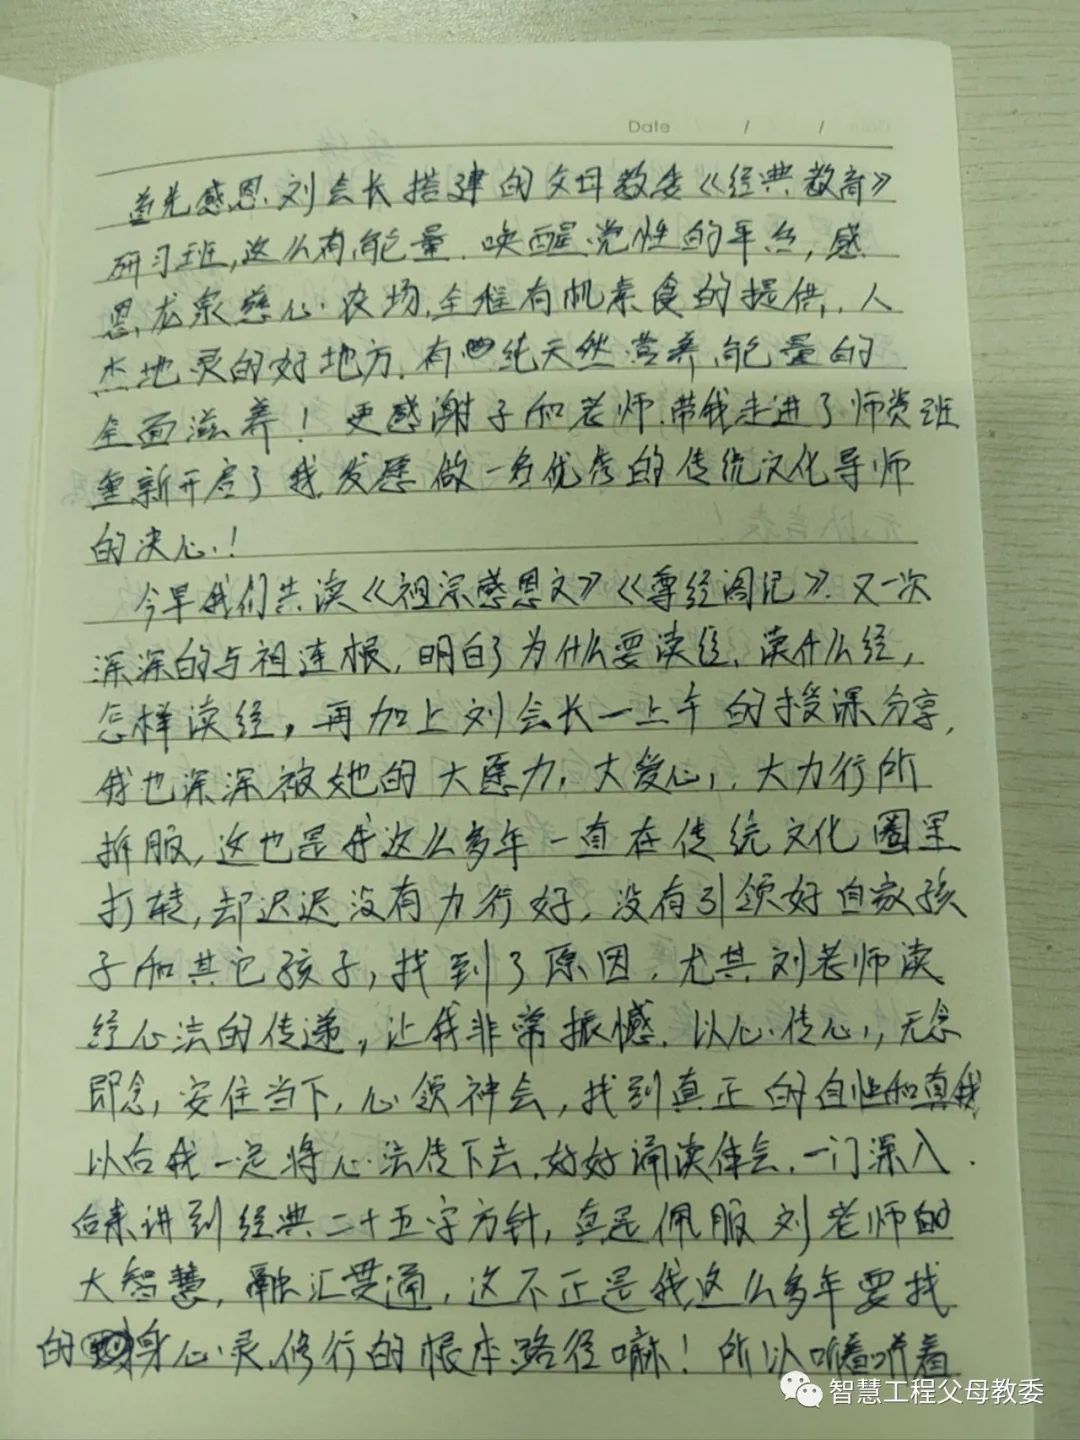 Date / /
首先感恩刘会长搭建的父母教委《经典教育》
研习班,这么有能量.唤醒觉性的平台,感
恩龙泉慈心农场,全程有机素食的提供,人
杰地灵的好地方.有纯天然营养能量的
全面滋养！更感谢子和老师.带我走进了师资班
重新开启了我发愿做一名优秀的传统文化导师
的决心！
今早我们共读《祖宗感恩文》《尊经阁记》.又一次
深深的与祖连根,明白了为什么要读经、读什么经,
怎样读经。再加上刘会长一上午的授课分享,
我也深深被她的大愿力,大爱心,大力行所
折服,这也是我这么多年一直在传统文化圈里
打转,却迟迟没有力行好,没有引领好自家孩
子和其它孩子,找到了原因.尤其刘老师读
经心法的传递,让我非常振憾.以心传心,无念
即念,安住当下,心领神会,找到真正的自性和真我
以后我一定将心法传下去.好好诵读体会.一门深入.
后来讲到经典二十五字方针,真是佩服刘老师的
大智慧,融汇贯通,这不正是我这么多年要找
的身心灵修行的根本路径嘛！所以听着听着
智慧工程父母教委